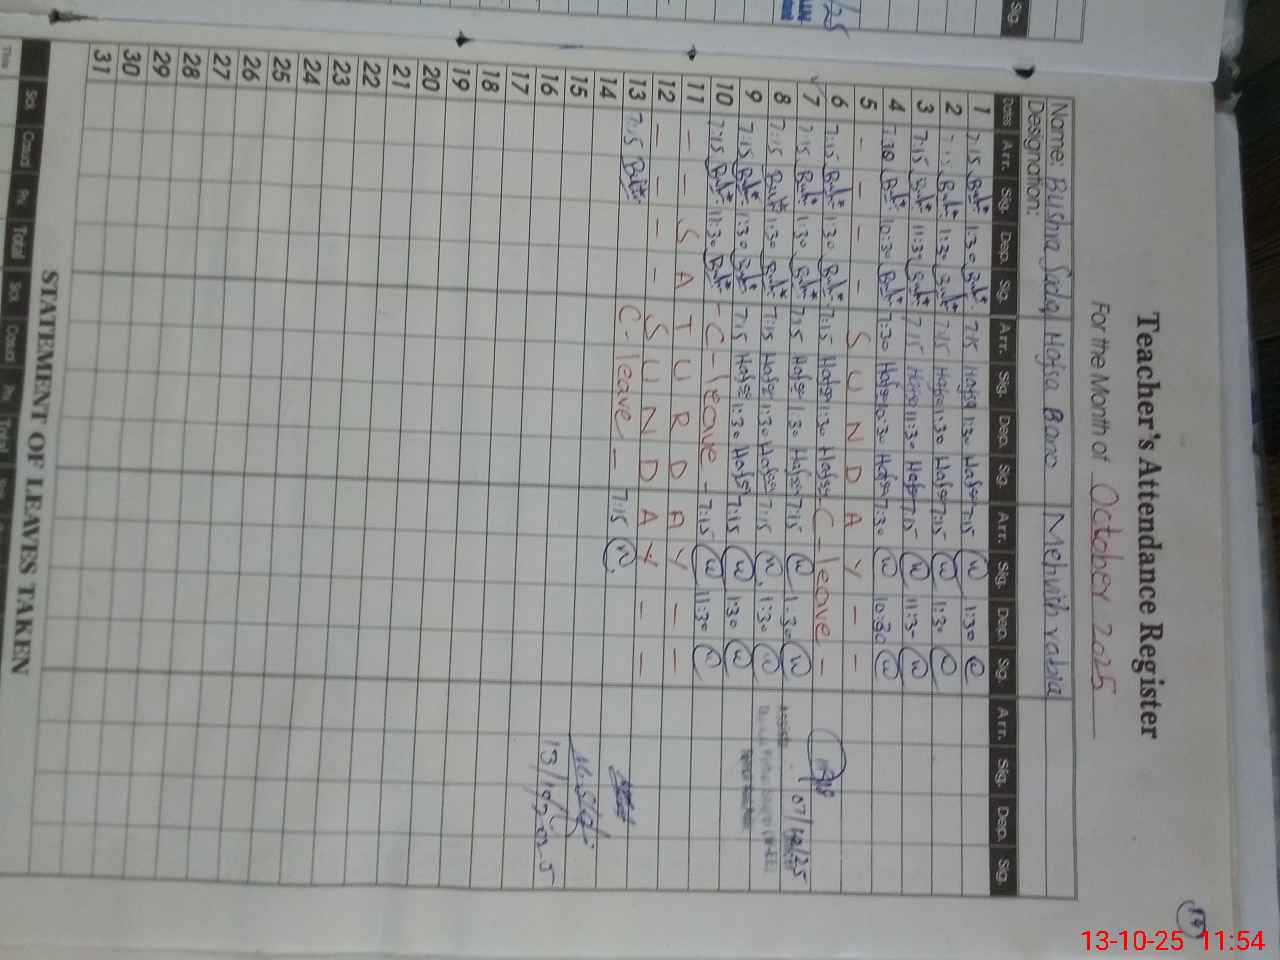 Teacher's Attendance Register
For the Month of October 2025
Name: Bushra Sadaf Hafsa Bano Mehwish rabia
Designation:
Dates Arr. Sig. Dep. Sig. Arr. Sig. Dep. Sig. Arr. Sig. Dep. Sig. Arr. Sig. Dep. Sig.
1 7:15 1:30 7:15 Hafsa 1:30 Hafsa 7:15 1:30
2 7:15 1:30 7:15 Hafsa 1:30 Hafsa 7:15 1:30
3 7:15 11:30 7:15 Hafsa 11:30 Hafsa 7:15 11:30
4 7:30 10:30 7:30 Hafsa 10:30 Hafsa 7:30 10:30
5 - - - - S U N D A Y - -
6 7:15 1:30 7:15 Hafsa 1:30 Hafsa C-leave -
7 7:15 1:30 7:15 Hafsa 1:30 Hafsa 7:15 1:30
07/10/25
8 7:15 1:30 7:15 Hafsa 1:30 Hafsa 7:15 1:30
9 7:15 1:30 7:15 Hafsa 1:30 Hafsa 7:15 1:30
10 7:15 11:30 - C-leave - 7:15 11:30
11 - - S A T U R D A Y - -
12 - - - - S U N D A Y - -
13 7:15 C-leave - 7:15
14
15
16
13/10/2025
17
18
19
20
21
22
23
24
25
26
27
28
29
30
31
STATEMENT OF LEAVES TAKEN
Sick Casual Pri. Total Sick Casual Pri. Total
This
Sig.
/25
14
13-10-25 11:54